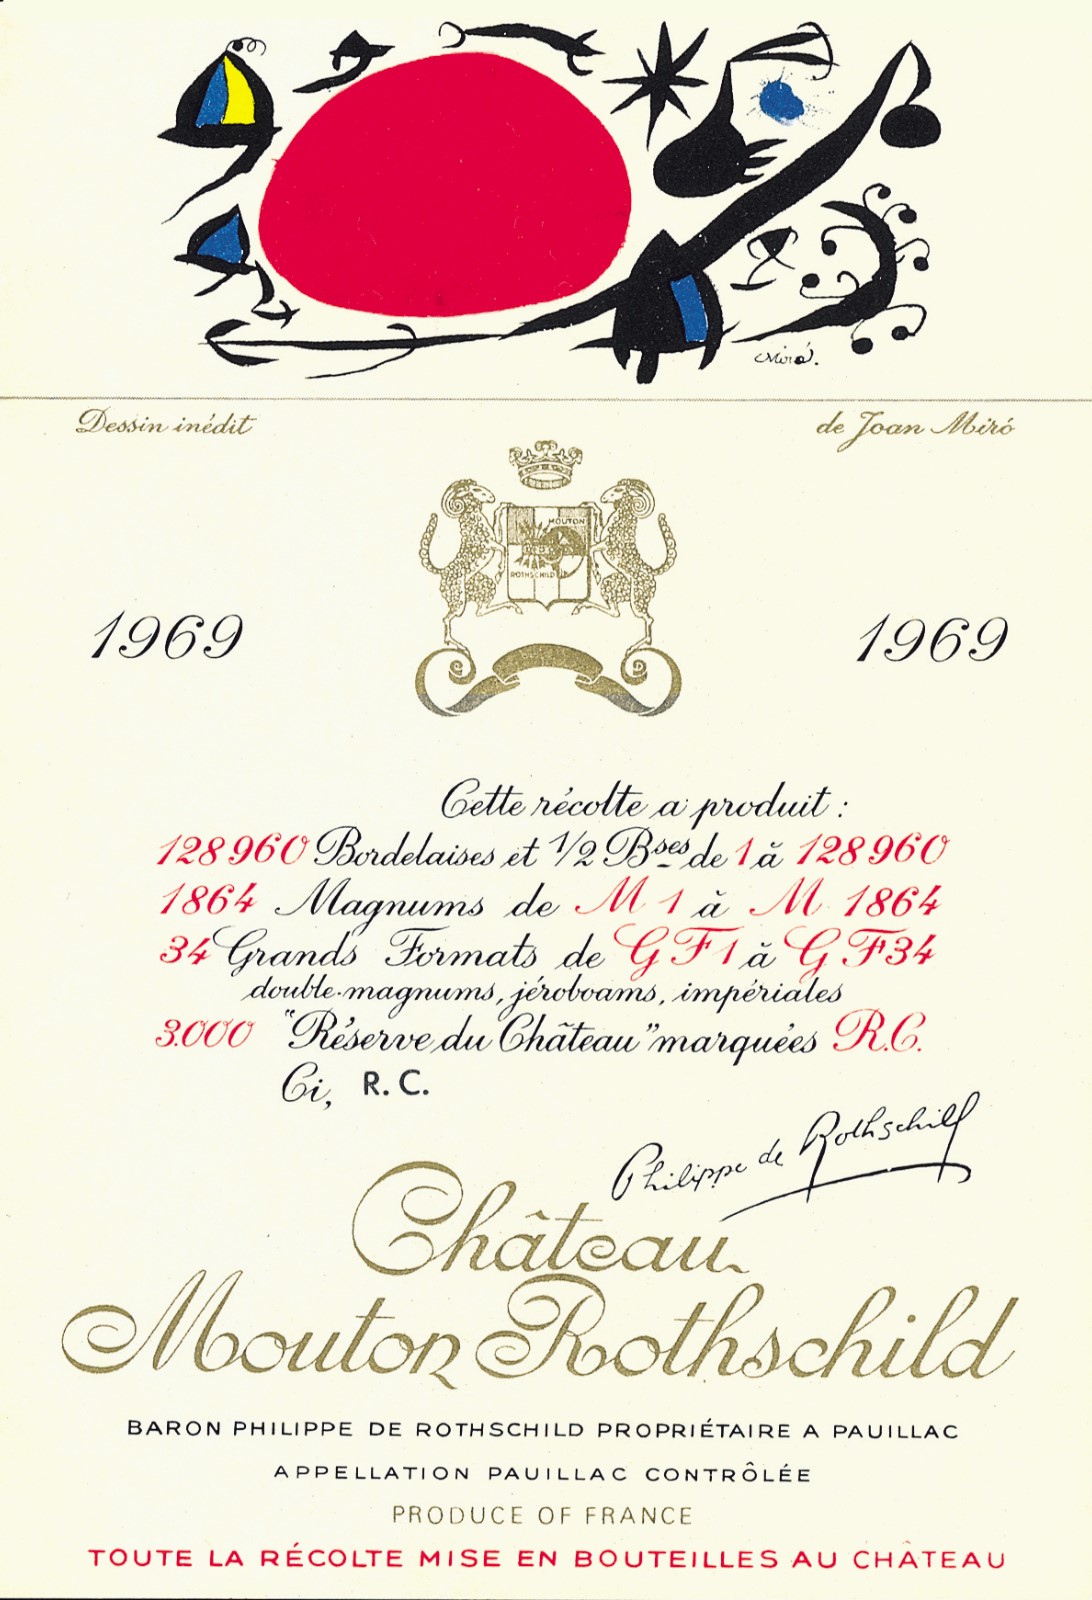 Miró.
Dessin inédit de Joan Miró
MOUTON
ROTHSCHILD
1969 1969
Cette récolte a produit :
128960 Bordelaises et 1/2 Bses de 1 à 128960
1864 Magnums de M 1 à M 1864
34 Grands Formats de GF1 à GF34
double-magnums, jéroboams, impériales
3.000 "Réserve du Château" marquées R.C.
Ci, R. C.
Philippe de Rothschild
Château
Mouton Rothschild
BARON PHILIPPE DE ROTHSCHILD PROPRIÉTAIRE A PAUILLAC
APPELLATION PAUILLAC CONTRÔLÉE
PRODUCE OF FRANCE
TOUTE LA RÉCOLTE MISE EN BOUTEILLES AU CHÂTEAU